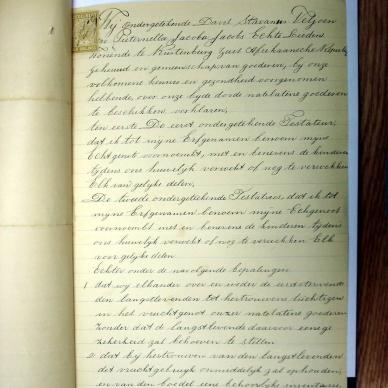 Wij ondergetekende David Stavanus Viljoen
en Pieternella Jacoba Jacobs Echte Lieden
Wonende te Rustenburg Zuid Afrikaansche Republiek
gehuwd in gemeenschap van goederen, bij onze
volkomene kennis en gezondheid voorgenomen
hebbende, over onze bijde dood natelatene goederen
te beschikken verklaren;
ten eerste. De eerst ondergetekende Testateur,
dat ik tot mijne Erfgenamen benoem mijne
Echtgenote voornoemt, met en benevens de kinderen
tijdens ons huwelijk verwekt of nog te verwekken
Elk van gelijke delen,
De tweede ondergetekende Testatrice, dat ik tot
mijne Erfgenamen benoem mijne Echtgenoot
voornoemt met en benevens de kinderen tijdens
ons huwelijk verwekt of nog te verwekken Elk
voor gelijke delen
Echter onder de navolgende bepalingen
1. dat wij elkander over en weder de eerststervende
den langstlevenden tot hertrouwens
in het vruchtgenot onzer natelatene goederen
Zonder dat de langstlevende daarvoor eenige
zekerheid zal behoeven te stellen
2. dat bij hertrouwen van den langstlevenden
dit vruchtgebruijk onmiddelijk zal ophouden,
en van den boedel eene behoorlijke inventaris